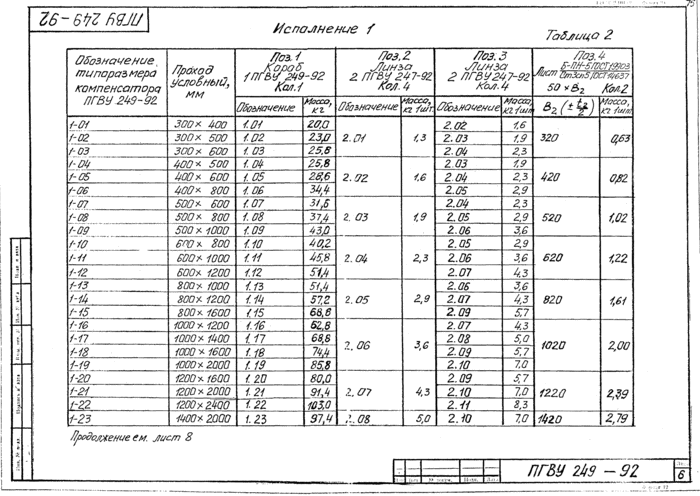 ПГВУ 249-92
75
Исполнение 1
Таблица 2
Обозначение типоразмера компенсатора ПГВУ 249-92 | Проход условный, мм | Поз.1 Короб 1 ПГВУ 249-92 Кол.1 | Поз.2 Линза 2 ПГВУ 247-92 Кол.4 | Поз.3 Линза 2 ПГВУ 247-92 Кол.4 | Поз.4 Лист Б-ПН-Б ГОСТ 19903 Ст3сп5 ГОСТ 14637 50 × B₂ Кол.2
Обозначение | Масса, кг | Обозначение | Масса, кг 1 шт. | Обозначение | Масса, кг 1 шт. | B₂ | Масса, кг 1 шт.
1-01 300 × 400 1.01 20,0 2.02 1,6
1-02 300 × 500 1.02 23,0 2.01 1,3 2.03 1,9 320 0,63
1-03 300 × 600 1.03 25,8 2.04 2,3
1-04 400 × 500 1.04 25,8 2.03 1,9
1-05 400 × 600 1.05 28,6 2.02 1,6 2.04 2,3 420 0,82
1-06 400 × 800 1.06 34,4 2.05 2,9
1-07 500 × 600 1.07 31,5 2.04 2,3
1-08 500 × 800 1.08 37,4 2.03 1,9 2.05 2,9 520 1,02
1-09 500 × 1000 1.09 43,0 2.06 3,6
1-10 600 × 800 1.10 40,2 2.05 2,9
1-11 600 × 1000 1.11 45,8 2.04 2,3 2.06 3,6 620 1,22
1-12 600 × 1200 1.12 51,4 2.07 4,3
1-13 800 × 1000 1.13 51,4 2.06 3,6
1-14 800 × 1200 1.14 57,2 2.05 2,9 2.07 4,3 820 1,61
1-15 800 × 1600 1.15 68,6 2.09 5,7
1-16 1000 × 1200 1.16 62,8 2.07 4,3
1-17 1000 × 1400 1.17 68,6 2.08 5,0
2.06 3,6 1020 2,00
1-18 1000 × 1600 1.18 74,4 2.09 5,7
1-19 1000 × 2000 1.19 85,8 2.10 7,0
1-20 1200 × 1600 1.20 80,0 2.09 5,7
1-21 1200 × 2000 1.21 91,4 2.07 4,3 2.10 7,0 1220 2,39
1-22 1200 × 2400 1.22 103,0 2.11 8,3
1-23 1400 × 2000 1.23 97,4 2.08 5,0 2.10 7,0 1420 2,79
Продолжение см. лист 8
ПГВУ 249 – 92
6